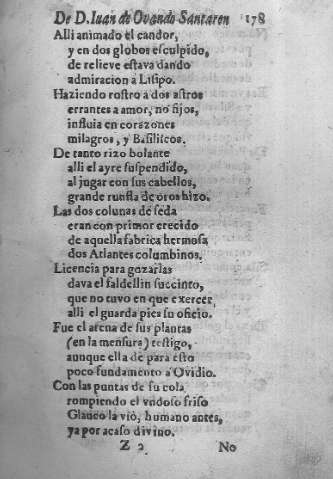 De D. Iuan de Ovando Santaren 178
Alli animado el candor,
y en dos globos esculpido,
de relieve estava dando
admiracion a Lisipo.
Haziendo rostro a dos astros
errantes a amor, no fijos,
influia en corazones
milagros, y Basiliscos.
De tanto rizo bolante
alli el ayre suspendido,
al jugar con sus cabellos,
grande runfla de oros hizo.
Las dos colunas de seda
eran con primor crecido
de aquella fabrica hermosa
dos Atlantes columbinos.
Licencia para gozarlas
dava el faldellin succinto,
que no tuvo en que exercer
alli el guarda pies su oficio.
Fue el arena de sus plantas
(en la mensura) testigo,
aunque ella de para esto
poco fundamento a Ovidio.
Con las puntas de su cola
rompiendo el vndoso friso
Glauco la viò, humano antes,
ya por acaso divino.
Z 2 No